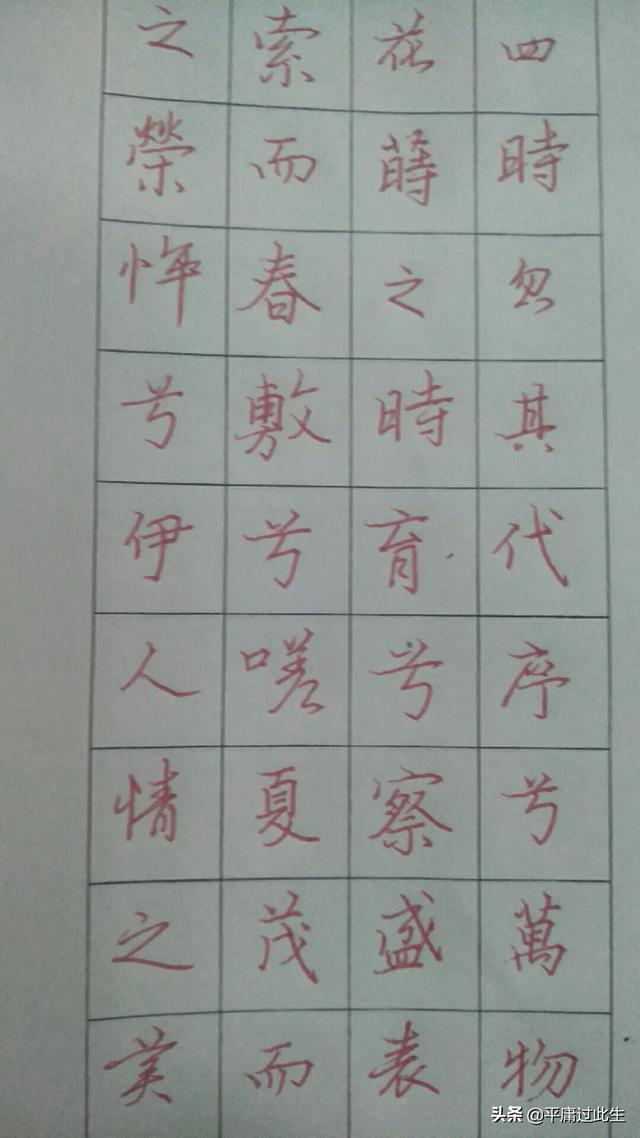 四時忽其代序兮萬物
花蒔之時育兮察盛衰
索而春敷兮嗟夏茂而
之榮悴兮伊人情之美
头条 @平庸过此生